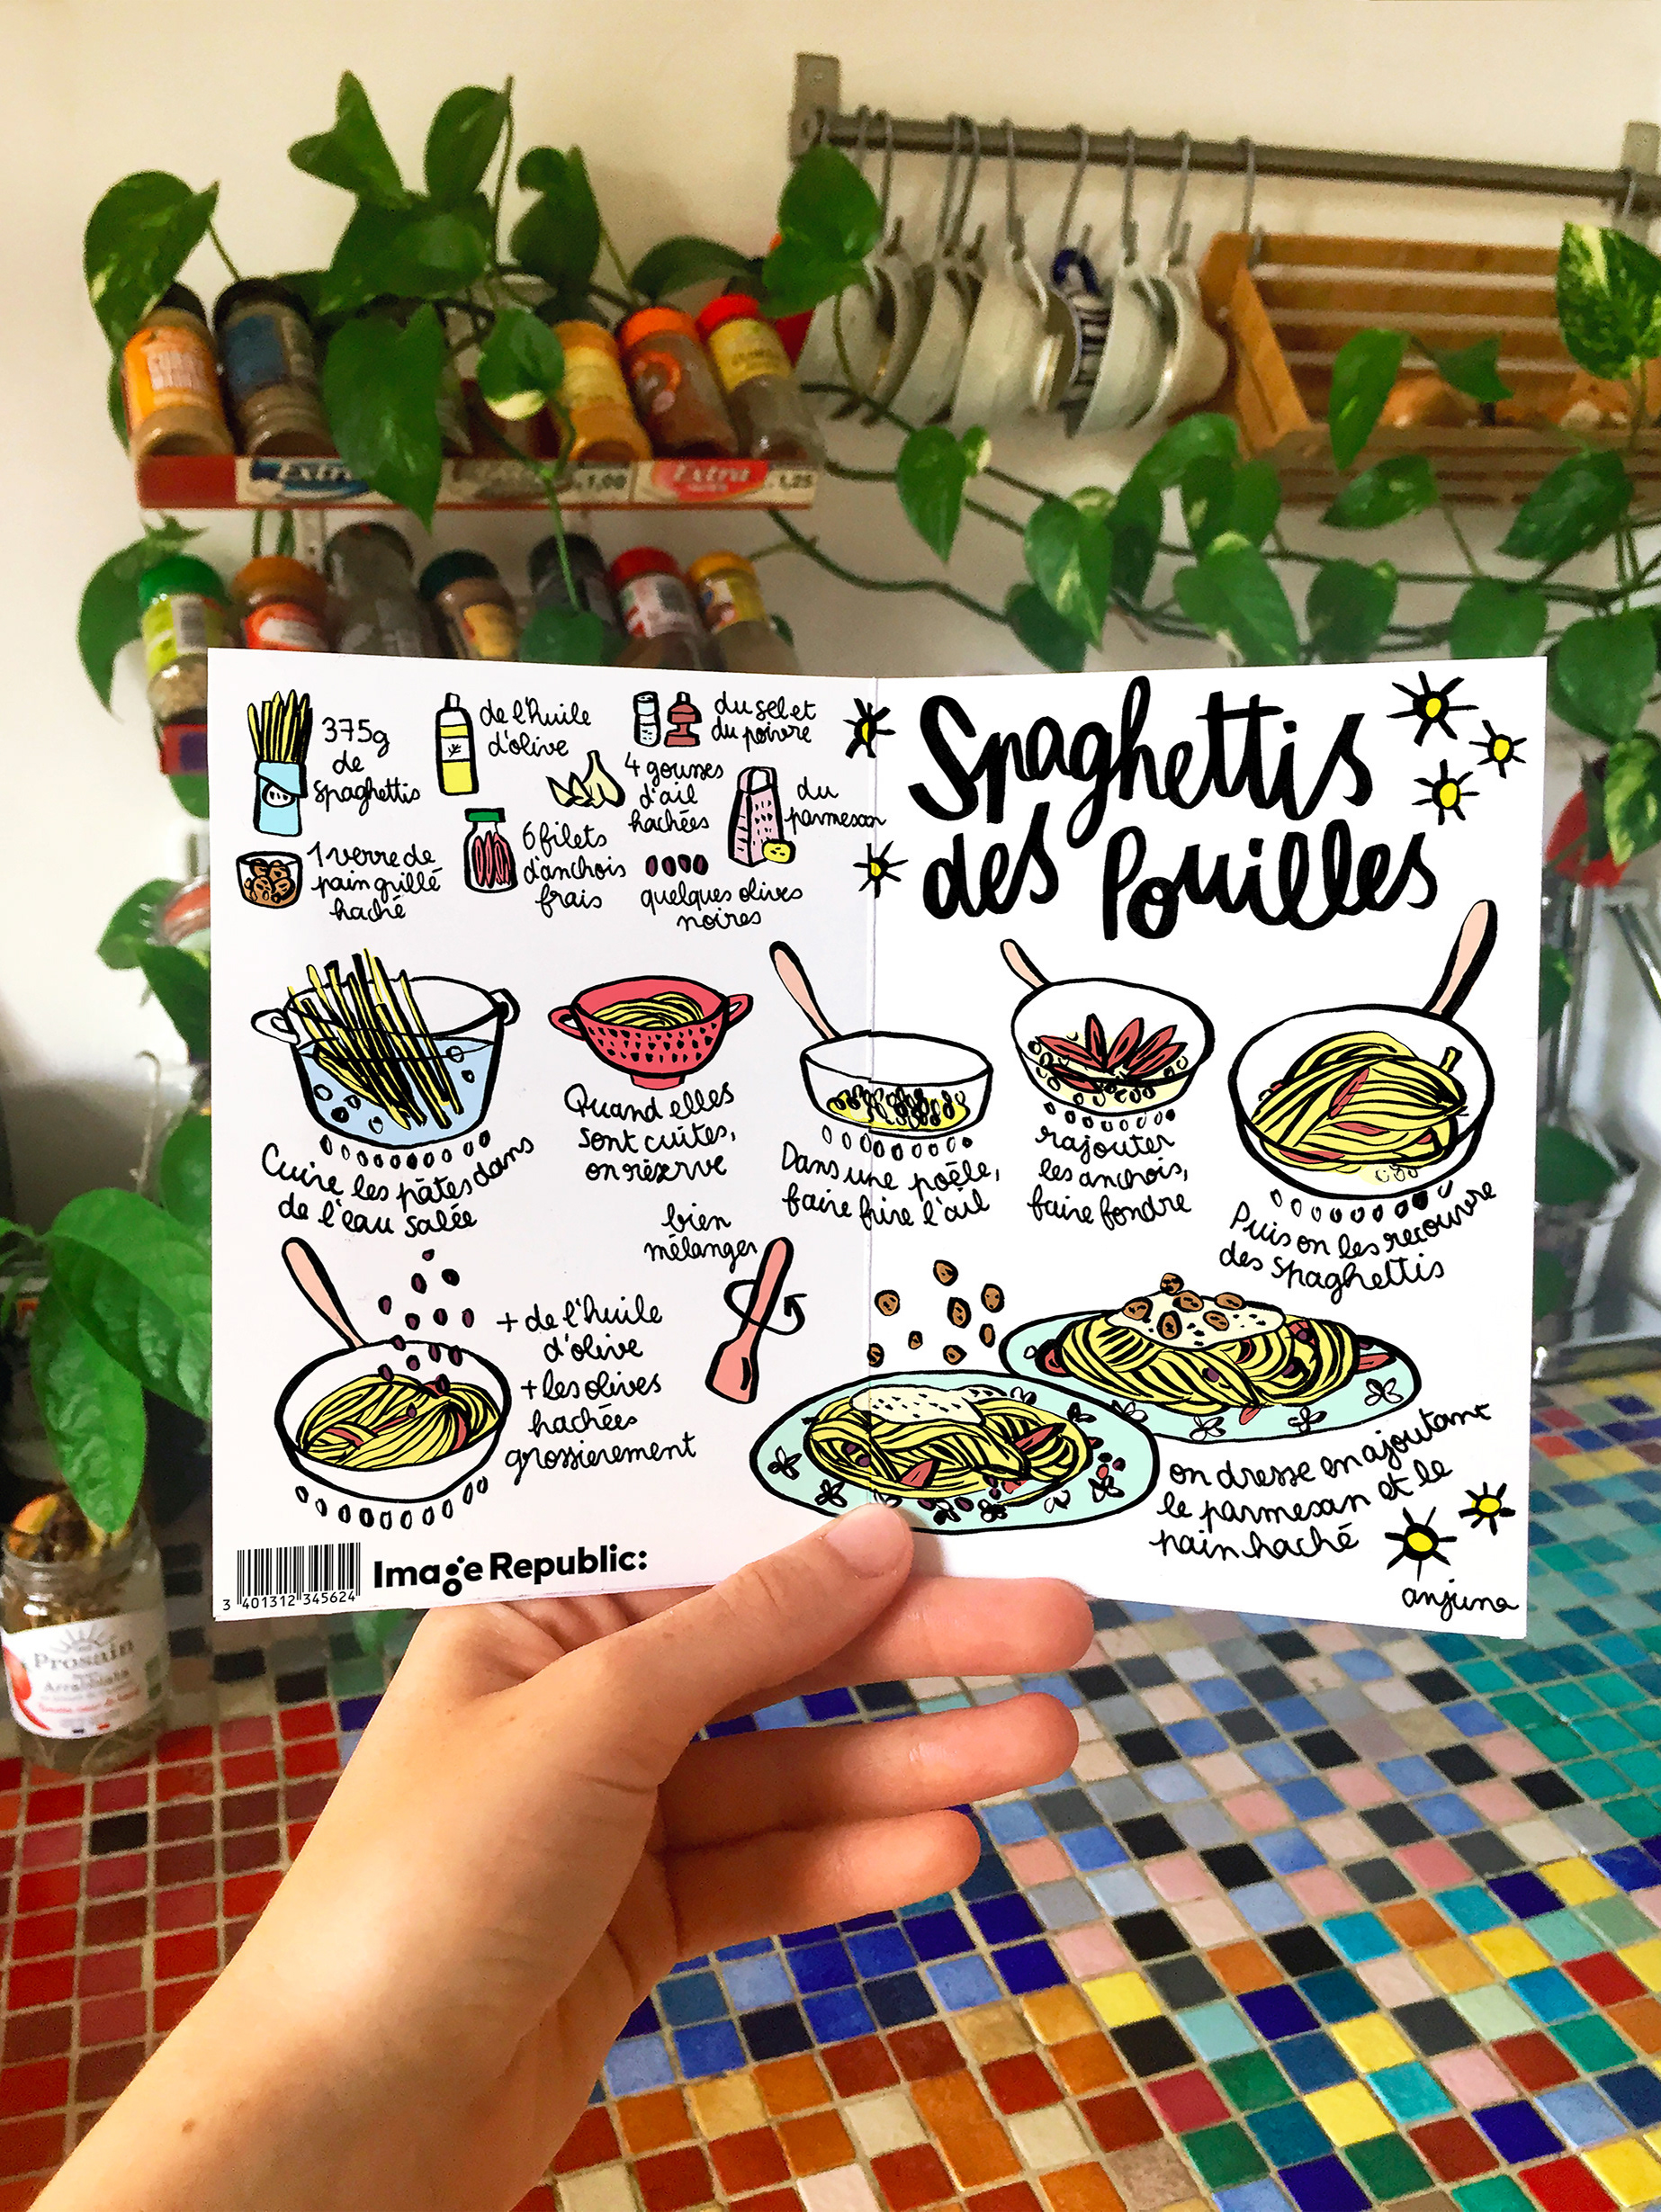 Extra
1,00
Extra
1,25
375g
de
spaghettis
de l'huile
d'olive
du sel et
du poivre
4 gousses
d'ail
hachées
du
parmesan
1 verre de
pain grillé
haché
6 filets
d'anchois
frais
quelques olives
noires
Spaghettis
des Pouilles
Cuire les pâtes dans
de l'eau salée
Quand elles
sont cuites,
on réserve
Dans une poêle,
faire frire l'ail
rajouter
les anchois,
faire fondre
Puis on les recouvre
des spaghettis
+ de l'huile
d'olive
+ les olives
hachées
grossierement
bien
mélanger
on dresse en ajoutant
le parmesan et le
pain haché
anjuna
3 401312 345624
Image Republic:
Prosain
Arrabbiata